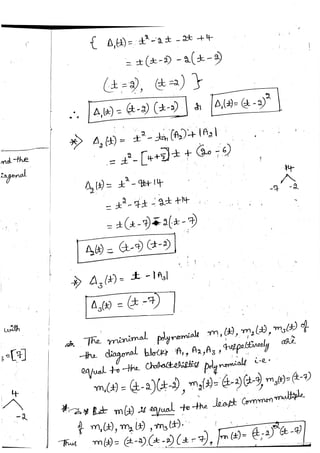 { Δ₁(t) = t² - 2t - 2t + 4
= t(t-2) - 2(t-2)
(t=2), (t=2) }
∴ Δ₁(t) = (t-2)(t-2) Δ₁(t) = (t-2)²
Δ₂(t) = t² - tr(A₂)t + |A₂|
nd the
= t² - [4+5]t + (20-6)
iagonal
Δ₂(t) = t² - 9t + 14
14
-7 -2
= t² - 7t - 2t + 14
= t(t-7) - 2(t-7)
Δ₂(t) = (t-7)(t-2)
Δ₃(t) = t - |A₃|
Δ₃(t) = (t-7)
with
The minimal polynomials m₁(t), m₂(t), m₃(t) of
the diagonal blocks A₁, A₂, A₃, respectively are
= [7]
equal to the characteristic polynomials i.e.
m₁(t) = (t-2)(t-2), m₂(t) = (t-2)(t-7) m₃(t) = (t-7)
4
-2
But m(t) is equal to the least common multiple
of m₁(t), m₂(t), m₃(t).
Thus m(t) = (t-2)(t-2)(t-7), m(t) = (t-2)²(t-7)